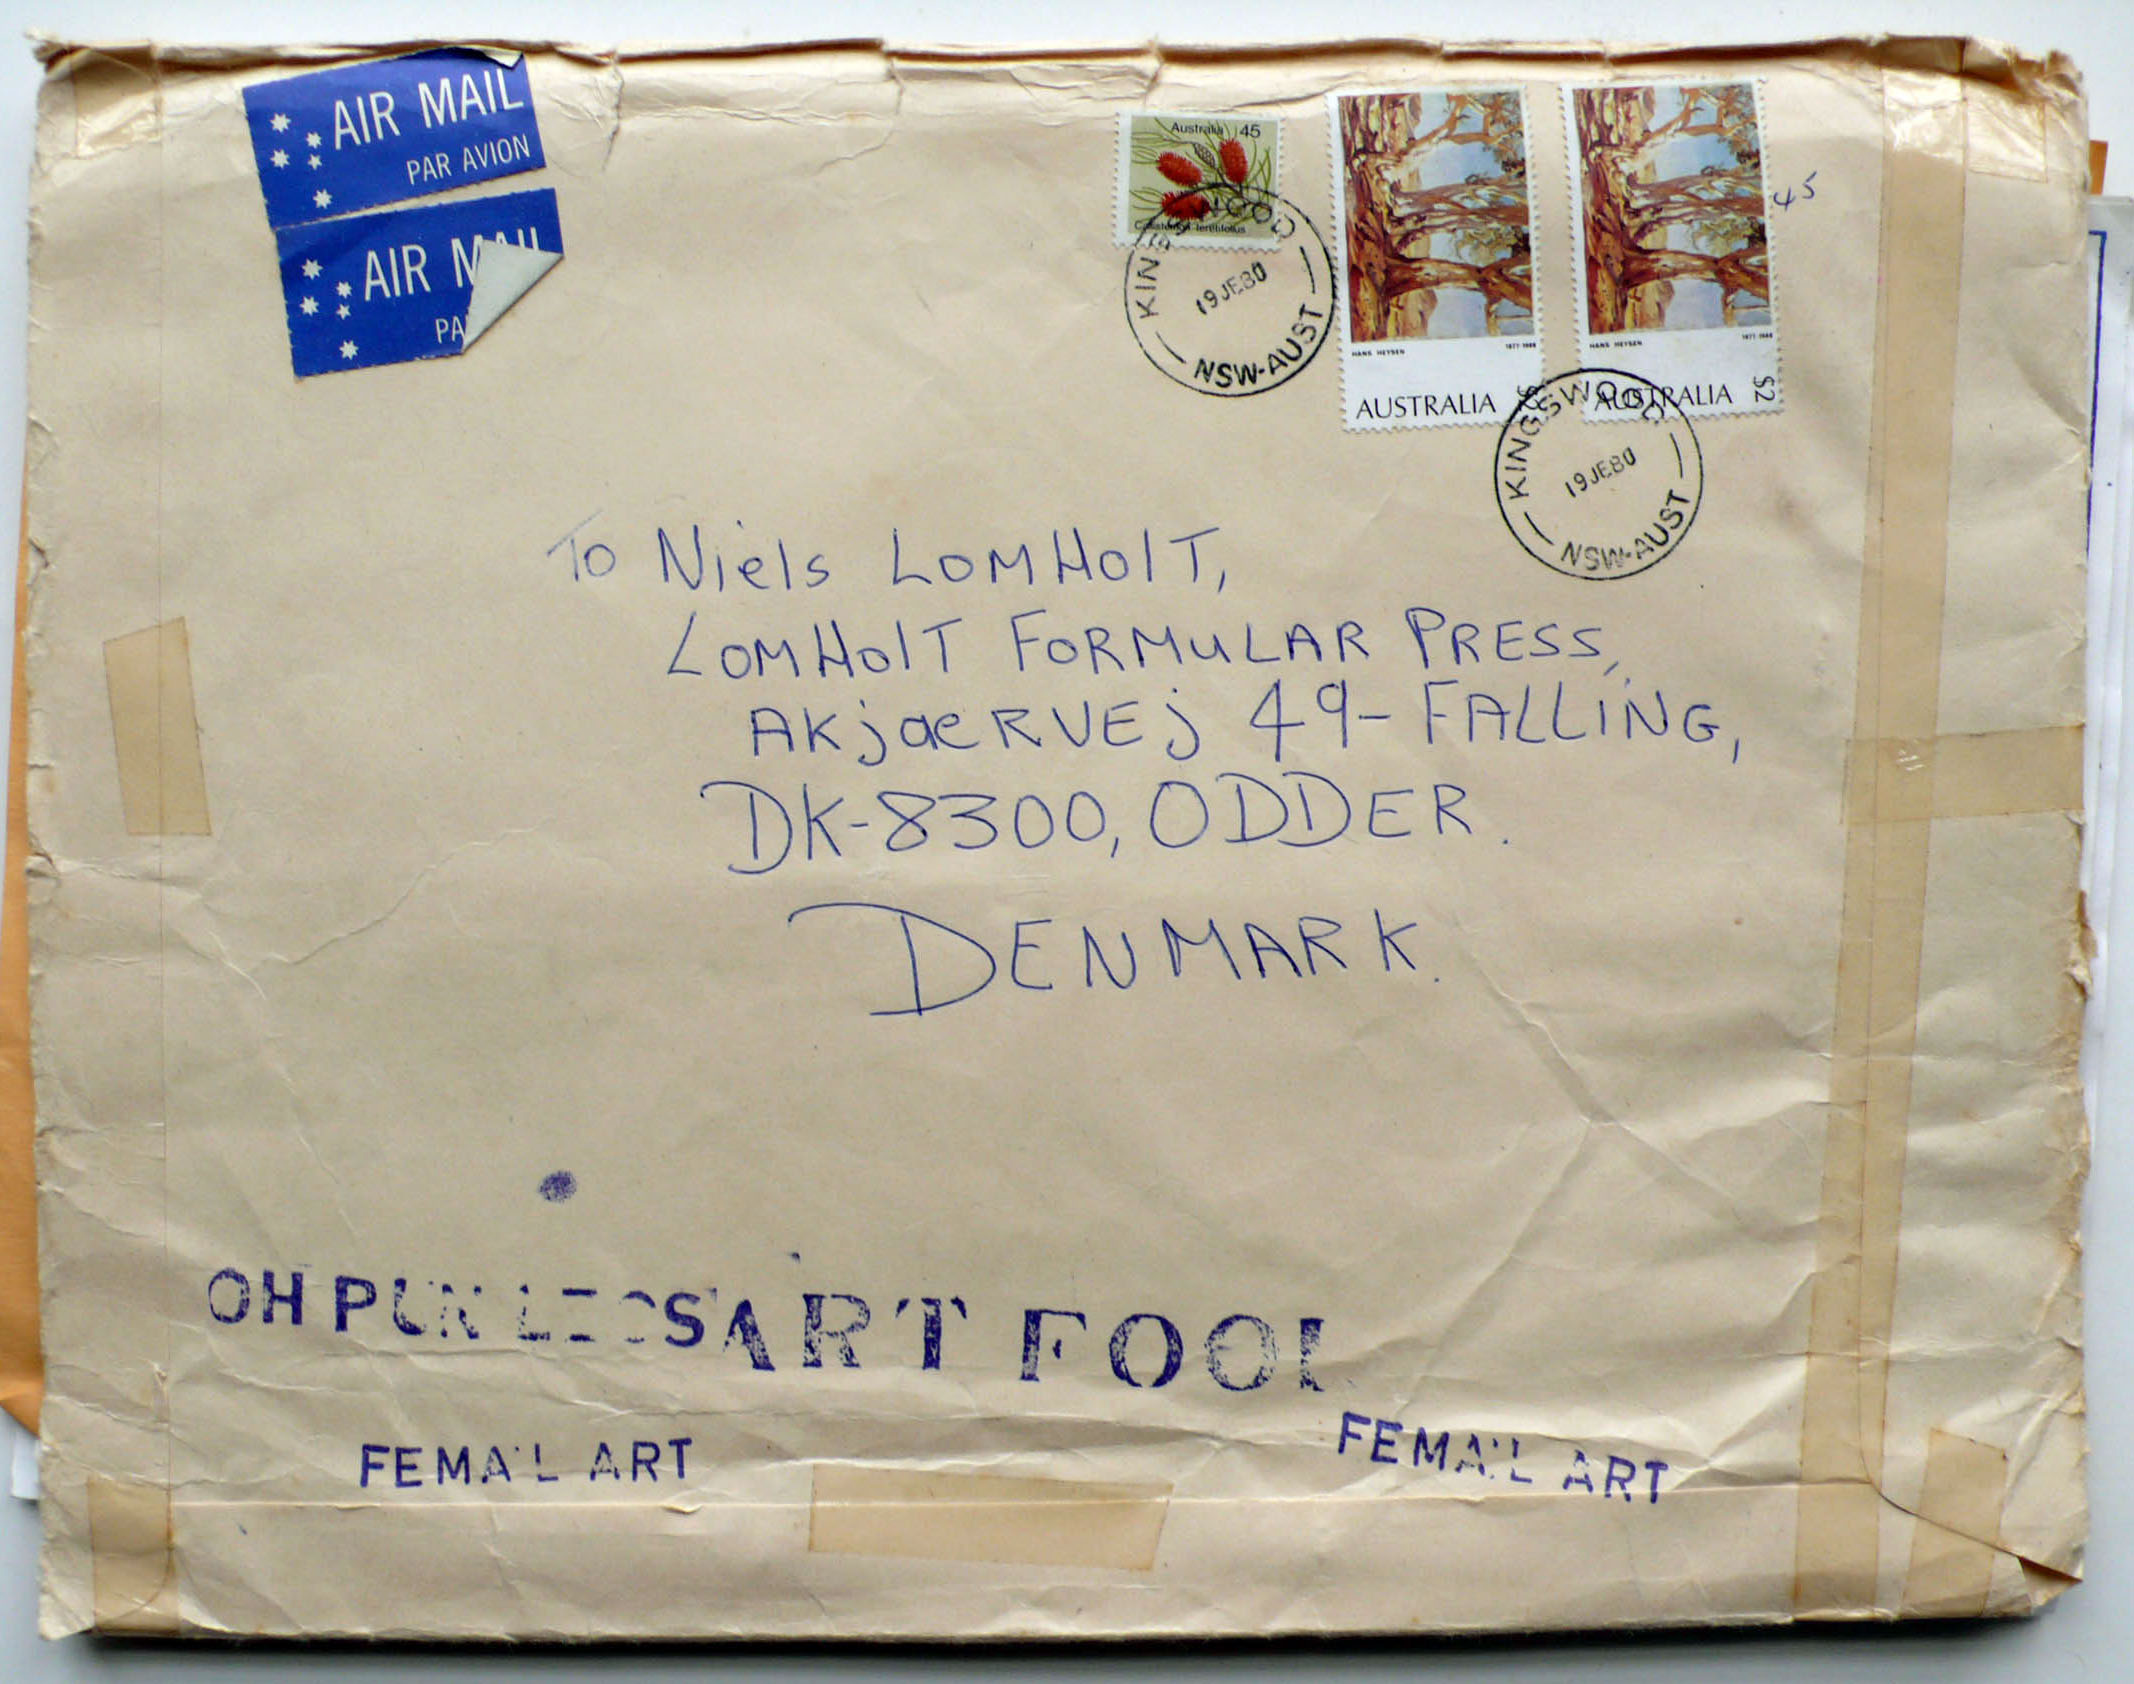 AIR MAIL
PAR AVION
AIR MAIL
PA
Australia 45
Callistemon teretifolius
KINGSWOOD
19JE80
NSW-AUST
HANS HEYSEN 1877-1968
AUSTRALIA $2
HANS HEYSEN 1877-1968
AUSTRALIA $2
45
KINGSWOOD
19JE80
NSW-AUST
To Niels LOMHOLT,
LOMHOLT FORMULAR PRESS,
AKjaERVEj 49-FALLING,
DK-8300, ODDER.
DENMARK.
OH ART FOOL
FEMAIL ART
FEMAIL ART